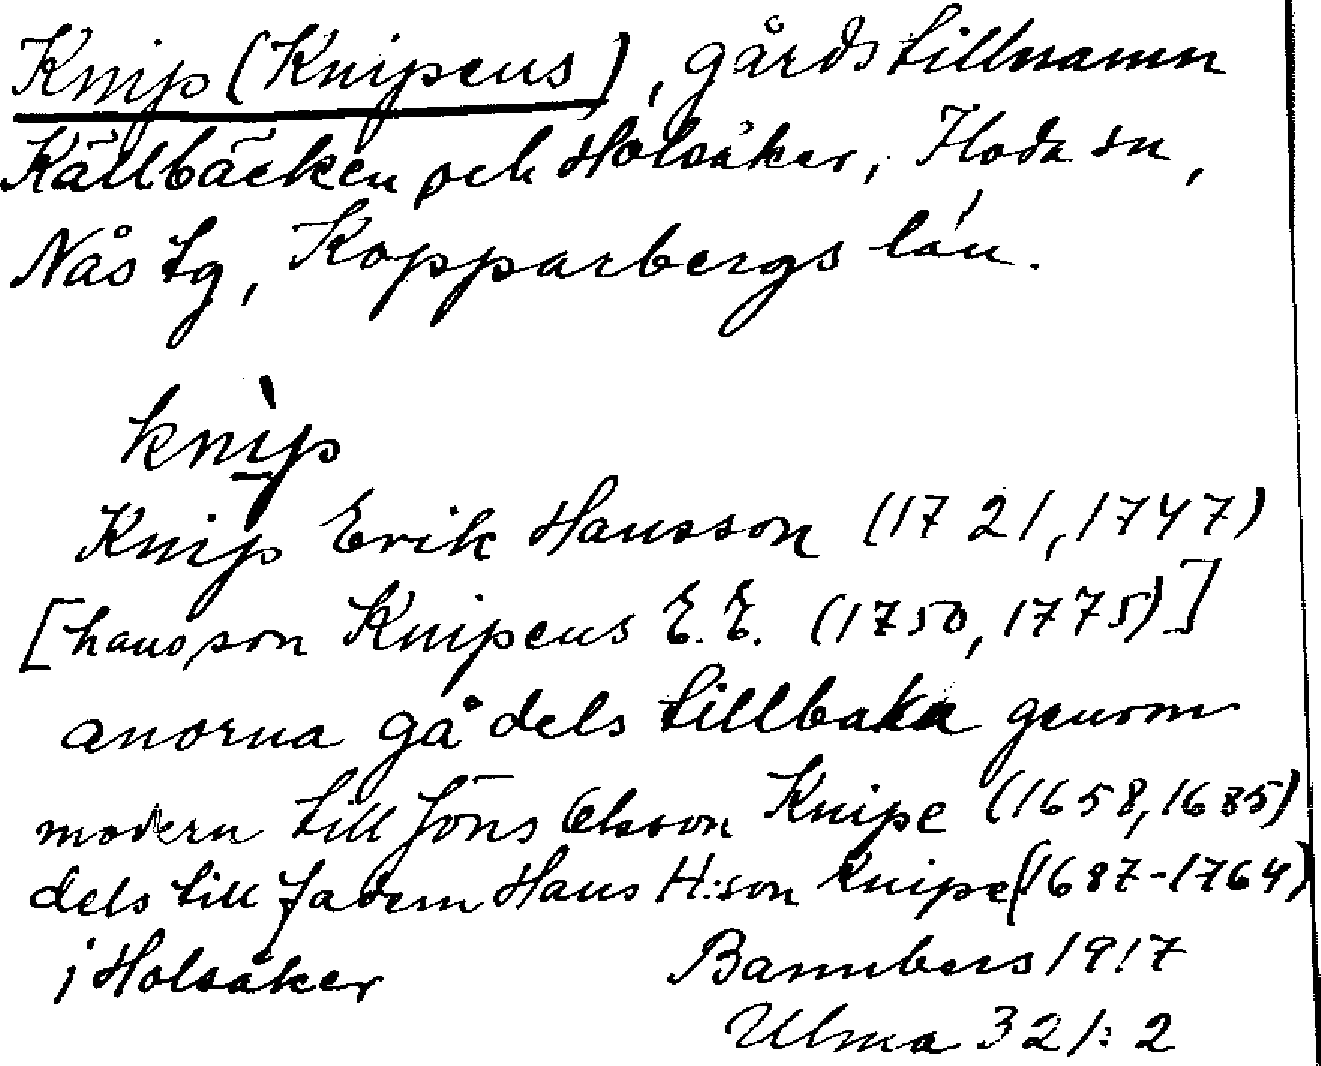 Knip (Knipeus), gårdstillnamn
Källbäcken och Holsåker, Floda sn,
Nås tg, Kopparbergs län.
knìp
Knip Erik Hansson (1721, 1747)
[hansson Knipeus E.E. (1750, 1775)]
anorna gå dels tillbaka genom
modern till Jöns Olsson Knipe (1658, 1685)
dels till fadern Hans H:son Knipe (1687-1764)
i Holsåker
Bannbers 1917
Ulma 321:2